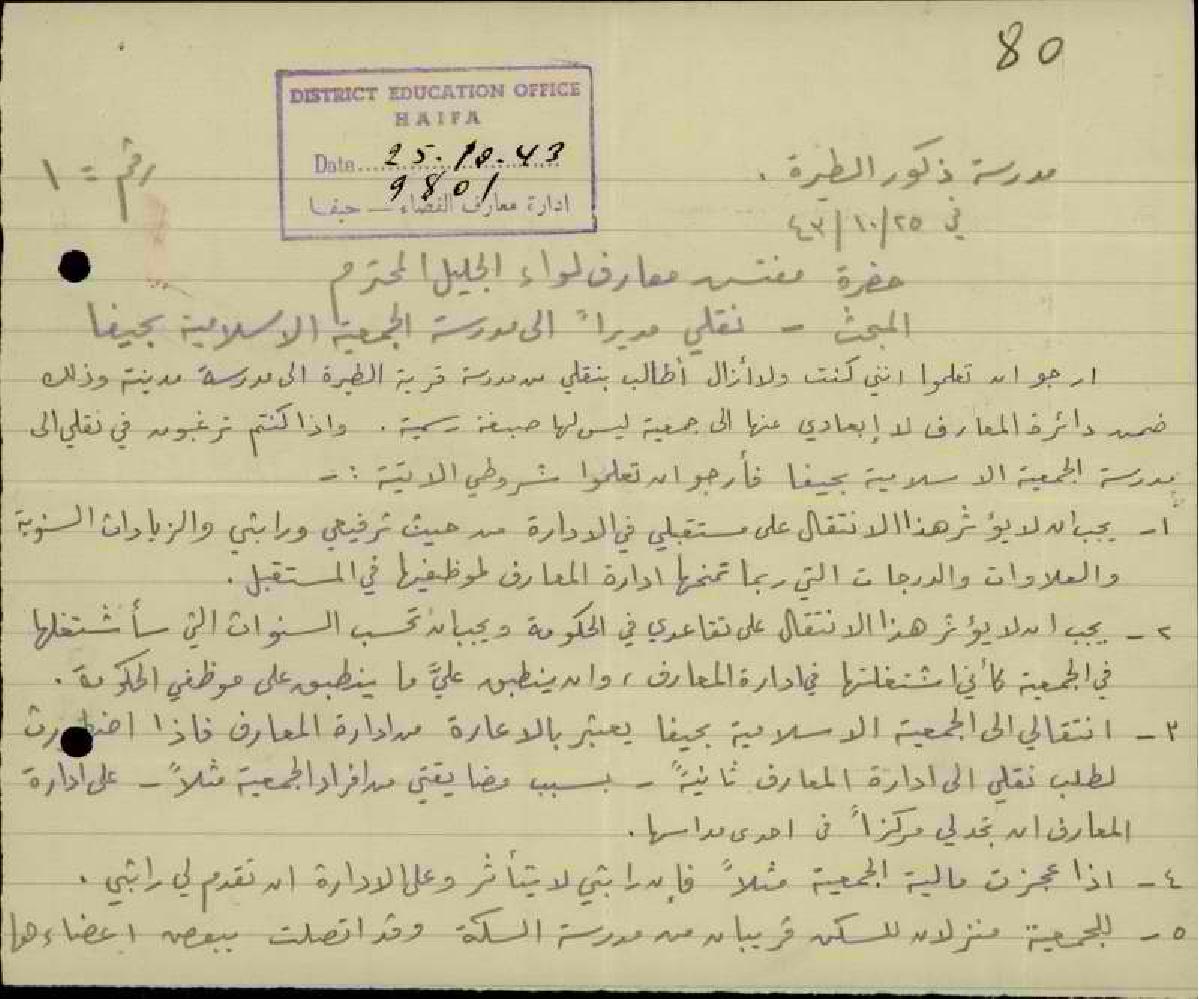 80
DISTRICT EDUCATION OFFICE
HAIFA
Date 25.10.43
9801
ادارة معارف القضاء — حيفا
رقم = ١
مدرسة ذكور الطيرة .
في ٢٥/١٠/٤٣
حضرة مفتش معارف لواء الجليل المحترم
المبحث - نقلي مديراً الى مدرسة الجمعية الاسلامية بحيفا
ارجو ان تعلموا انني كنت ولا أزال أطالب بنقلي من مدرسة قرية الطيرة الى مدرسة مدينة وذلك
ضمن دائرة المعارف لا إبعادي عنها الى جمعية ليس لها صبغة رسمية . واذا كنتم ترغبون في نقلي الى
مدرسة الجمعية الاسلامية بحيفا فأرجو ان تعلموا شروطي الاتية :-
١- يجب ان لا يؤثر هذا الانتقال على مستقبلي في الادارة من حيث ترفيعي وراتبي والزيادات السنوية
والعلاوات والدرجات التي ربما تمنحها ادارة المعارف لموظفيها في المستقبل .
٢- يجب ان لا يؤثر هذا الانتقال على تقاعدي في الحكومة ويجب ان تحسب السنوات التي سأشتغلها
في الجمعية كأني اشتغلتها في ادارة المعارف ، وان ينطبق عليَّ ما ينطبق على موظفي الحكومة .
٣- انتقالي الى الجمعية الاسلامية بحيفا يعتبر بالاعارة من ادارة المعارف فاذا اضطررت
لطلب نقلي الى ادارة المعارف ثانيةً - بسبب مضايقتي من افراد الجمعية مثلاً - على ادارة
المعارف ان تجد لي مركزاً في احدى مدارسها .
٤- اذا عجزت مالية الجمعية مثلاً فإن راتبي لا يتأثر وعلى الادارة ان تقدم لي راتبي .
٥- للجمعية منزلان للسكن قريبان من مدرسة السكة وقد اتصلت ببعض اعضاءها